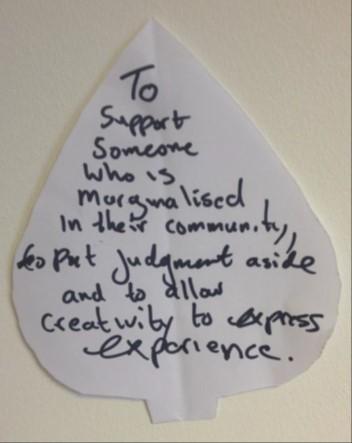 To
Support
Someone
who is
marginalised
In their community,
to put judgment aside
and to allow
creativity to express
experience.